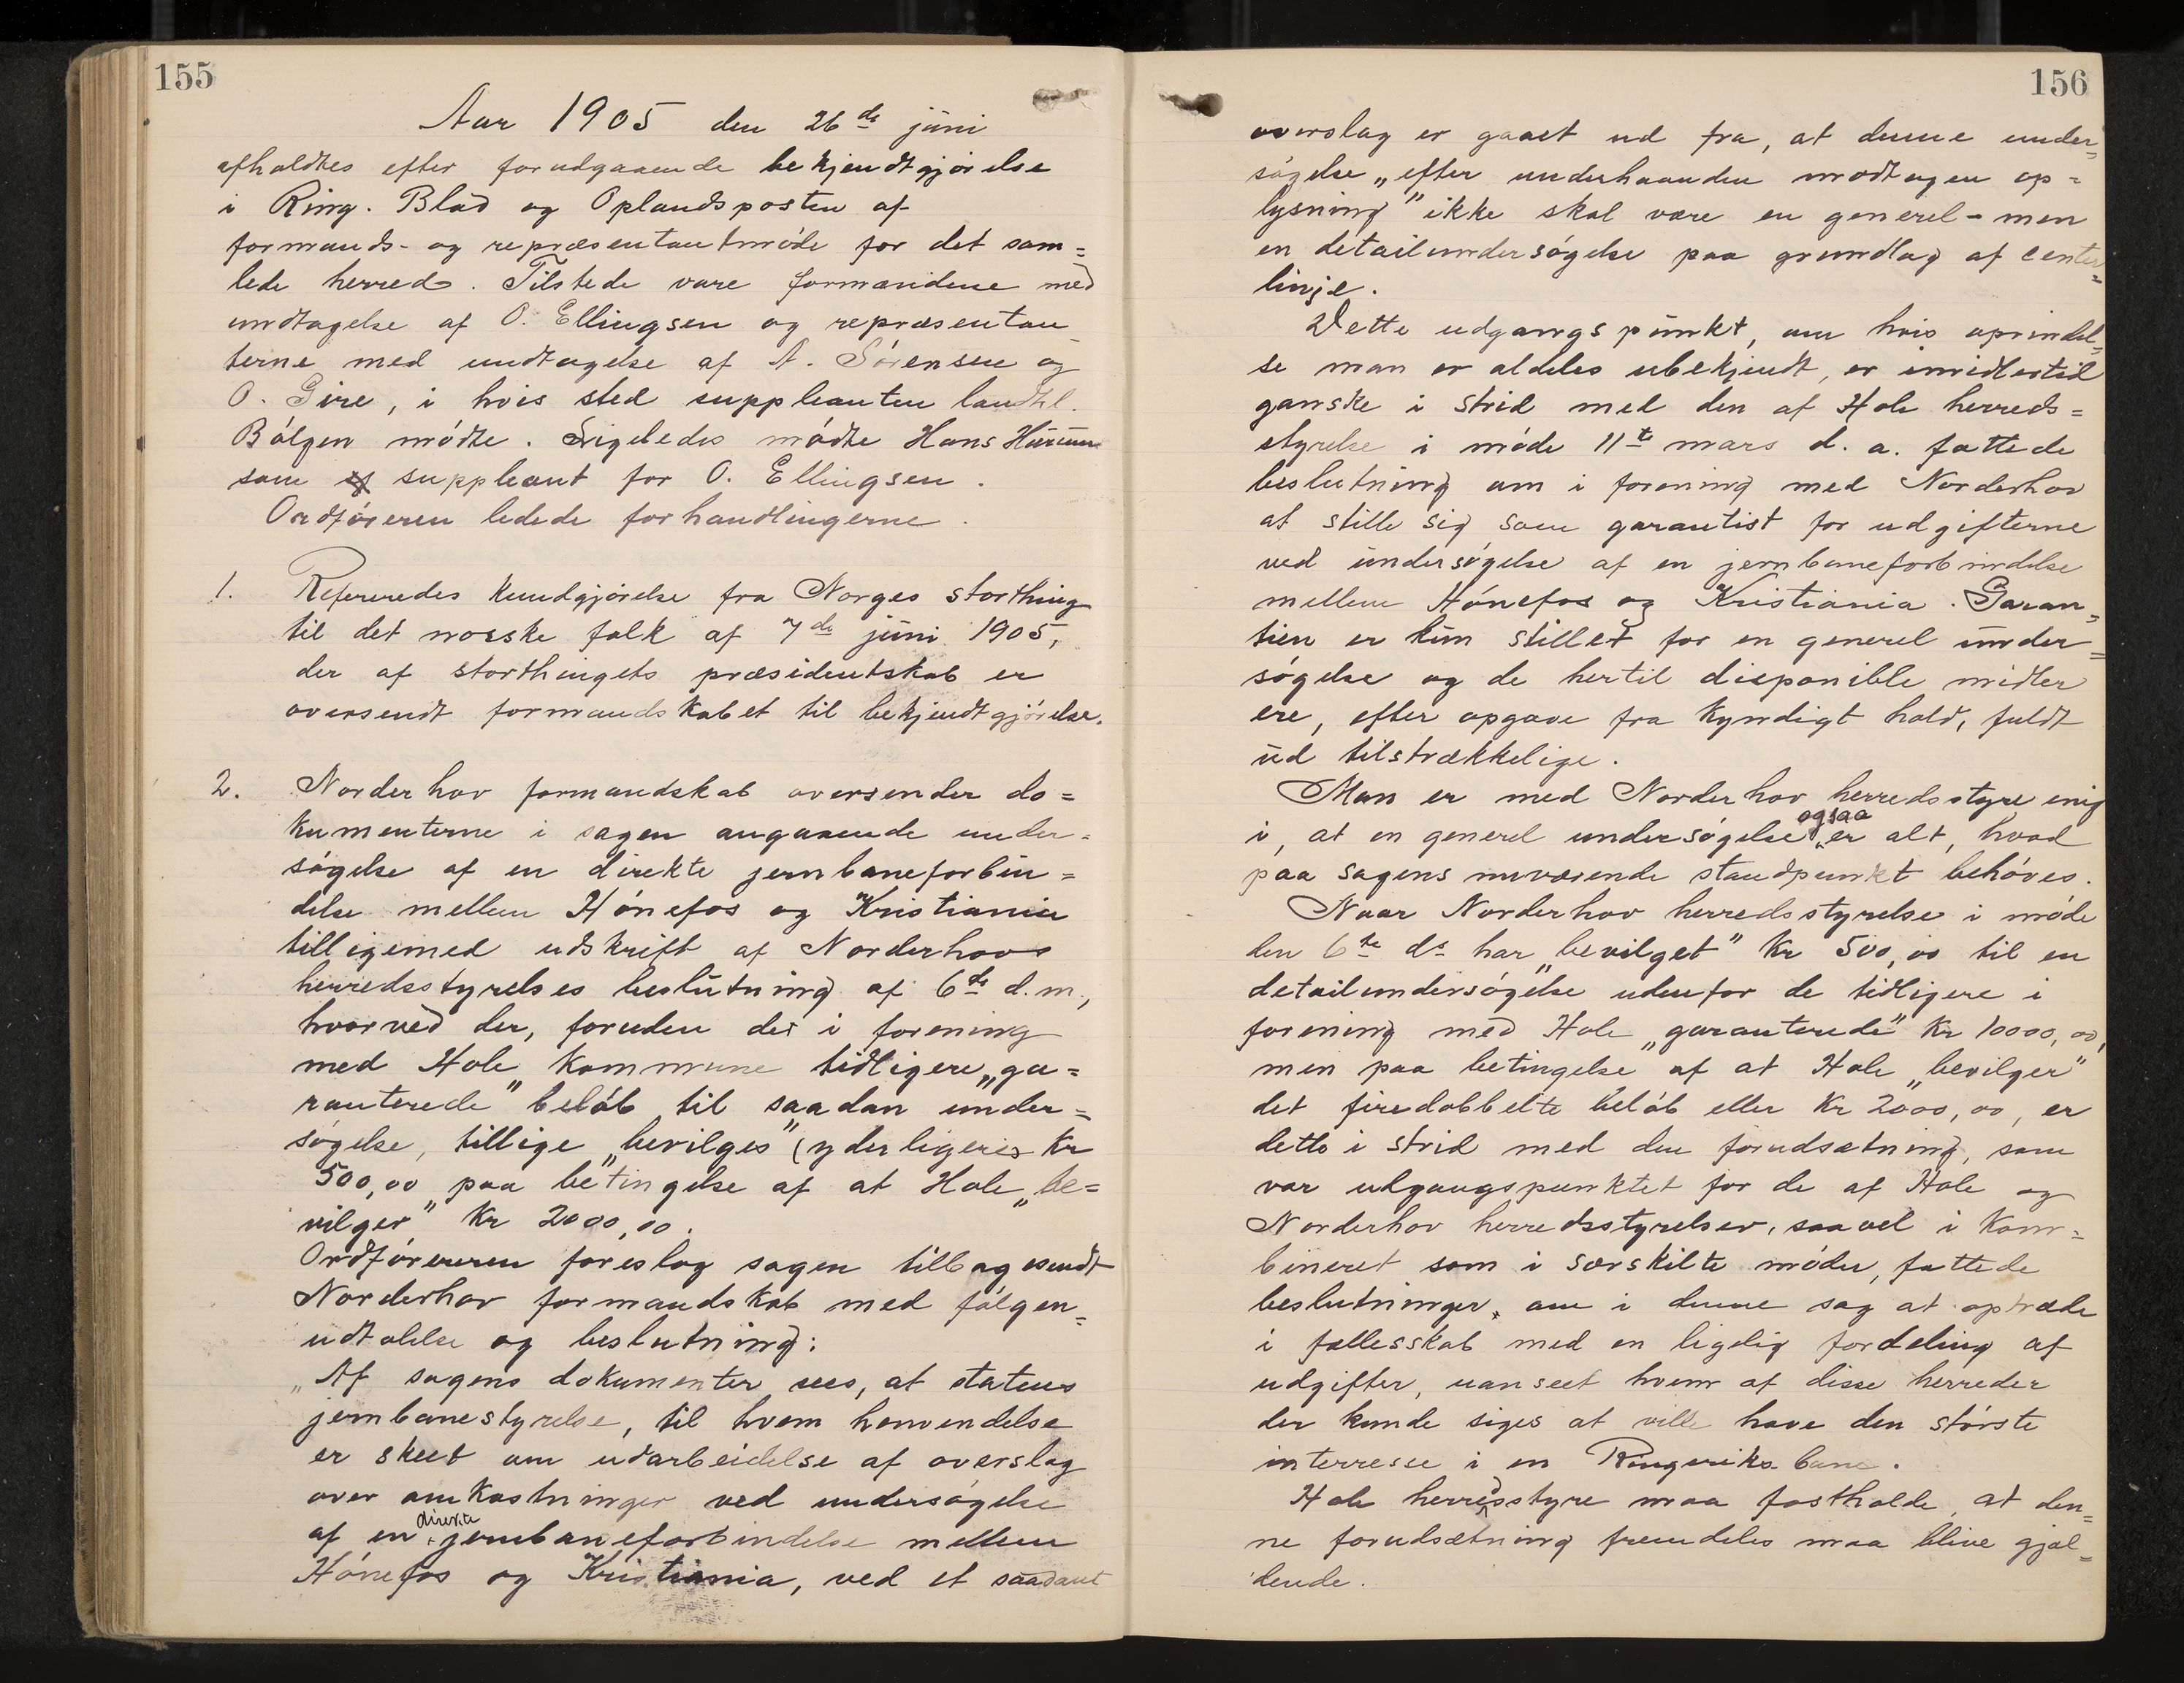 155
Aar 1905 den 26de júni
afholdtes efter forudgaaende bekjendtgjørelse
i Ring. Blad og Oplandsposten af
formands- og repræsentantmóde for det sam=
lede herred. Tilstede vare formændene med
undtagelse af O. Ellingsen og repræsentan
terne med undtagelse af A. Sórensen og
O. Gire, i hvis sted suppleanten landhl.
Bólgen módte. Ligeledes mødte Hans Húrum
som suppleant for O. Ellingsen.
Ordfóreren ledede forhandlingerne.
1. Refereredes kundgjørelse fra Norges storthing
til det norske folk af 7de júni 1905,
der af storthingets præsidentskab er
oversendt formandskabet til bekjendtgjórelse.
2. Norderhov formandskab oversender do=
kumenterne i sagen angaaende under=
søgelse af en direkte jernbaneforbin=
delse mellem Hónefos og Kristiania
tilligemed udskrift af Norderhovs
herredsstyrelses beslútning af 6te d.m.,
hvorved der, foruden det i forening
med Hole kommune tidligere „ga=
ranterede" belób til saadan under=
søgelse, tillige „bevilges" (yderligere) Kr
500,00 paa betingelse af at Hole „be=
vilger" Kr 2000,00.
Ordfóreren foreslog sagen tilbagesendt
Norderhov formandskab med fólgen=
udtalelse og beslutning:
„Af sagens dokumenter sees, at statens
jernbanestyrelse, til hvem henvendelse
er skeet om udarbeidelse af overslag
over omkostninger ved undersøgelse
af en direkte jernbaneforbindelse mellem
Hónefos og Kristiania, ved et saadant
156
overslag er gaaet ud fra, at denne under=
søgelse „efter underhaanden modtagen op=
lysning" ikke skal være en generel - men
en detailundersógelse paa grundlag af center=
linje.
Dette udgangspúnkt, om hvis oprindel=
se man er aldeles ubekjendt, er imidlertid
ganske i strid med den af Hole herreds=
styrelse i móde 11te mars d. a. fattede
beslutning om i forening med Norderhov
at stille sig som garantist for udgifterne
ved úndersøgelse af en jernbaneforbindelse
mellem Hónefos og Kristiania. Garan=
tien er kún stillet for en generel únder=
søgelse og de hertil disponible midler
ere, efter opgave fra kyndigt hold, fuldt
úd tilstrækkelige.
Man er med Norderhov herredsstyre enig
i, at en generel undersógelse ogsaa er alt, hvad
paa sagens nuværende standpunkt behóves.
Naar Norderhov herredsstyrelse i móde
den 6te ds har „bevilget" Kr 500,00 til en
detailundersógelse udenfor de tidligere i
forening med Hole „garanterede" Kr 10000,00,
men paa betingelse af at Hole „bevilger"
det firedobbelte belób eller Kr 2000,00, er
dette i strid med den forudsætning, som
var udgangspunktet for de af Hole og
Norderhov herredsstyrelser, saavel i kom=
bineret som i særskilte móder, fattede
beslutninger, om i denne sag at optræde
i fællesskab med en ligelig fordeling af
udgifter, uanseet hvem af disse herreder
der kunde siges at ville have den stórste
interresse i en Ringeriksbane.
Hole herredsstyre maa fastholde, at den=
ne forudsætning fremdeles maa blive gjæl=
dende.